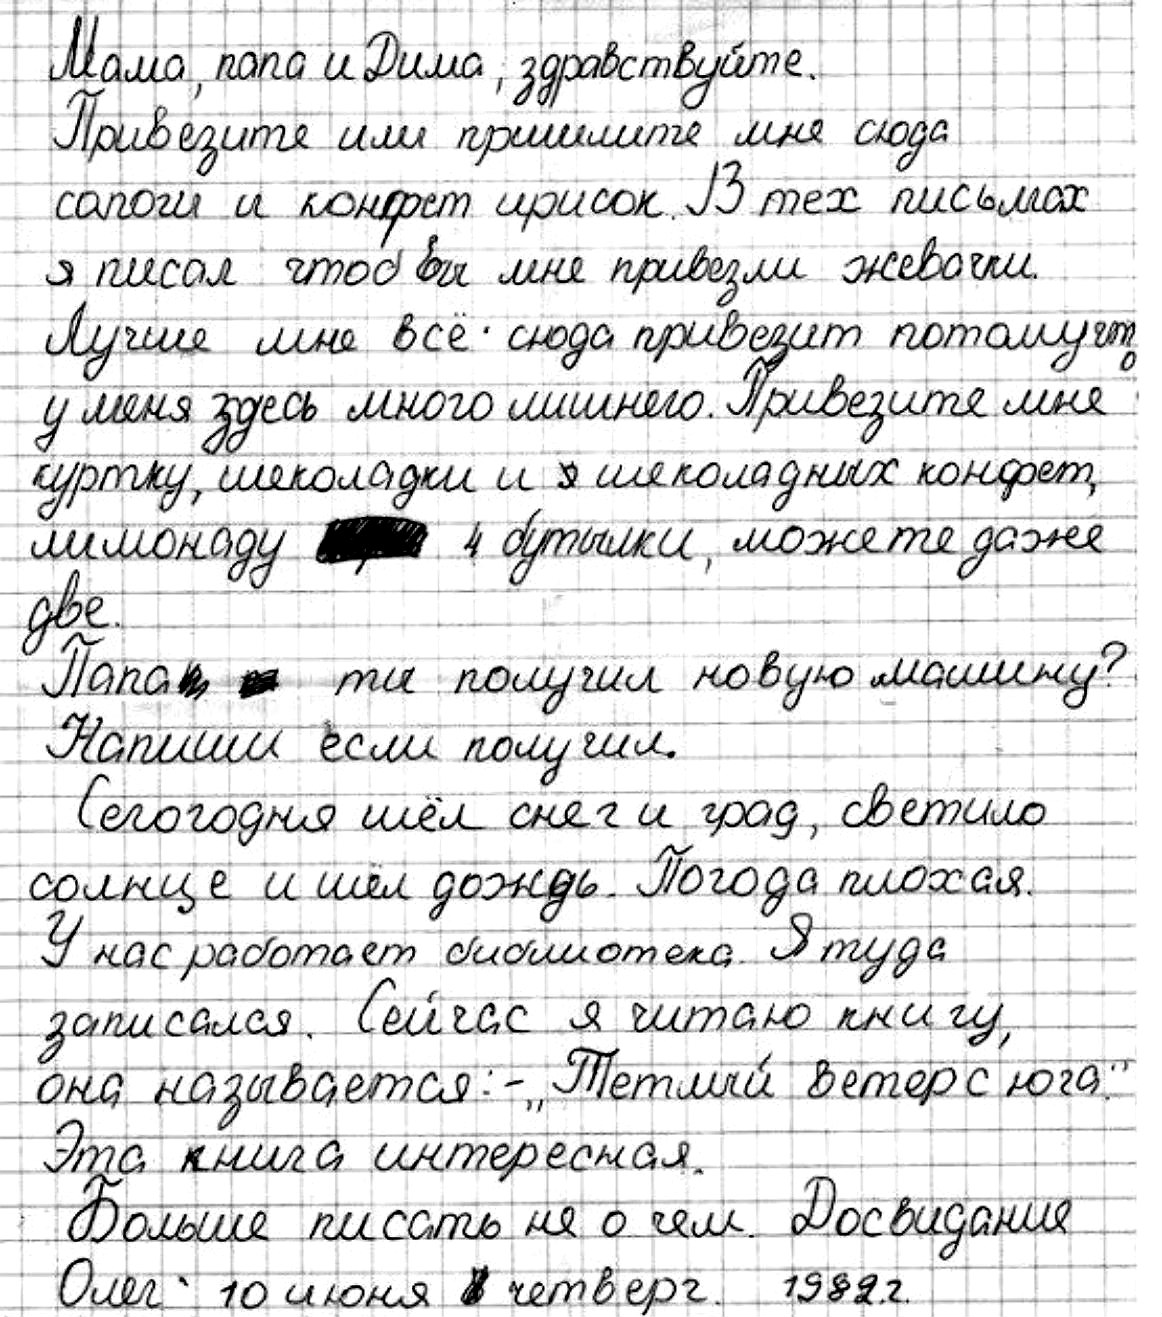 Мама, папа и Дима, здравствуйте.
Привезите или пришлите мне сюда
сапоги и конфет ирисок. В тех письмах
я писал чтоб бы мне привезли жевачки.
Лучше мне всё сюда привезит потомучто
у меня здесь много лишнего. Привезите мне
куртку, шеколадки и шеколадных конфет,
лимонаду 4 бутылки, можете даже
две.
Папа ты получил новую машину?
Напиши если получил.
Сегогодня шёл снег и град, светило
солнце и шёл дождь. Погода плохая.
У нас работает библиотека. Я туда
записался. Сейчас я читаю книгу,
она называется: - „Тетлый ветер с юга."
Эта книга интересная.
Больше писать не о чем. Досвидание
Олег. 10 июня четверг. 1982 г.